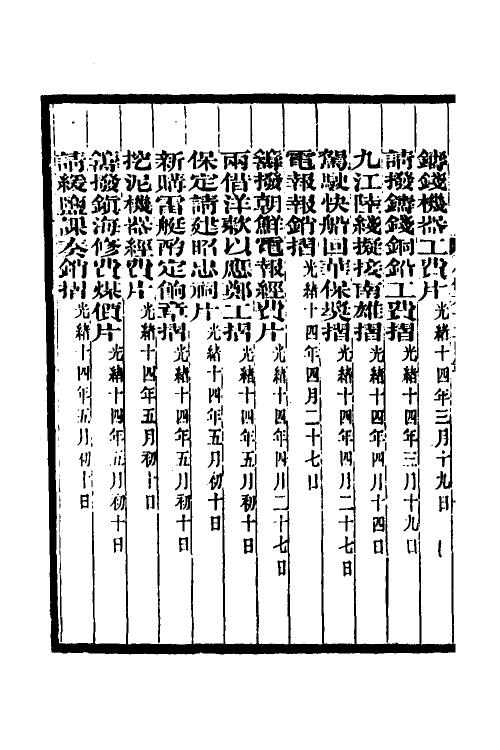 鑄錢機器工費片光緒十四年三月十九日
請撥鑄錢銅鉛工費摺光緒十四年三月十九日
九江陸綫擬接南雄摺光緒十四年四月十四日
駕駛快船回華保奬摺光緒十四年四月二十七日
電報報銷摺光緒十四年四月二十七日
籌撥朝鮮電報經費片光緒十四年四月二十七日
兩借洋款以應鄭工摺光緒十四年五月初十日
保定請建昭忠祠片光緒十四年五月初十日
新購雷艇酌定餉章摺光緒十四年五月初十日
挖泥機器經費片光緒十四年五月初十日
籌撥鎮海修費煤價片光緒十四年五月初十日
請緩鹽課奏銷摺光緒十四年五月初十日